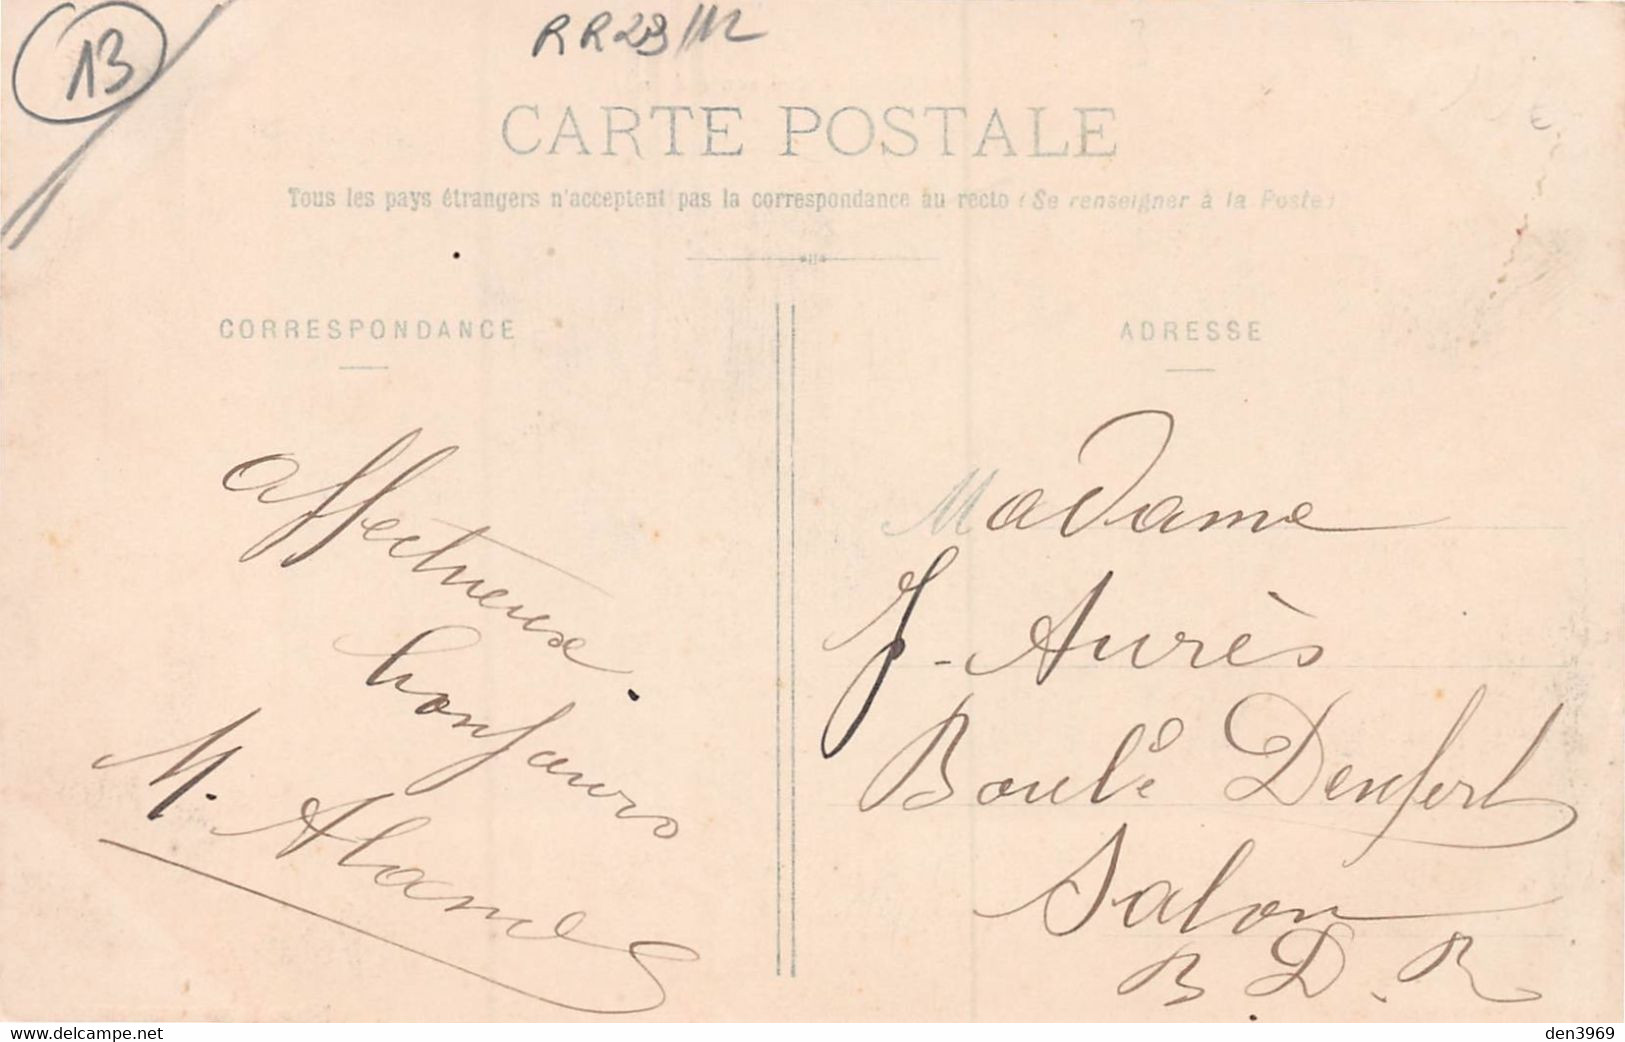 13
RR23/112
CARTE POSTALE
Tous les pays étrangers n'acceptent pas la correspondance au recto (Se renseigner à la Poste)
CORRESPONDANCE
affectueux
bonjours
M. Alazme
ADRESSE
Madame
J. Aurès
Boul.d Denfert
Salon
B. D. R
www.delcampe.net
den3969